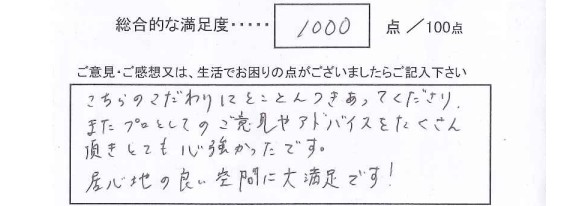 総合的な満足度・・・・・ 1000 点 ／100点
ご意見・ご感想又は、生活でお困りの点がございましたらご記入下さい
こちらのこだわりにとことんつきあってくださり、
またプロとしてのご意見やアドバイスをたくさん
頂きとても心強かったです。
居心地の良い空間に大満足です！